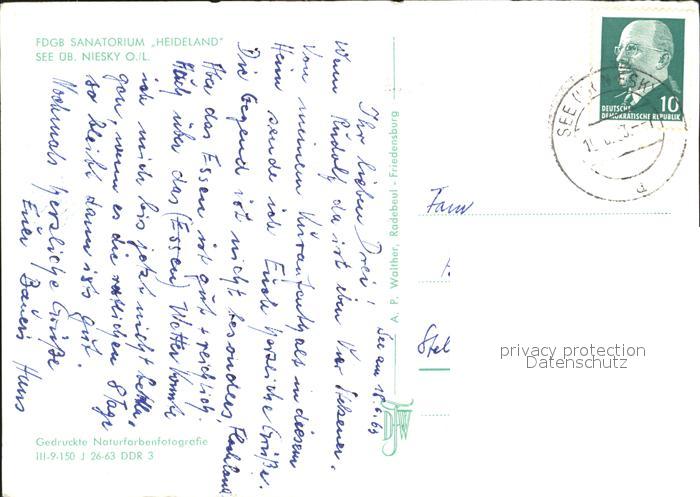 FDGB SANATORIUM „HEIDELAND"
SEE ÜB. NIESKY O./L.
See am 18.6.63
Ihr lieben Drei!
Wenn Rudolf da ist eben
Von meinem Kuraufenthalt in diesem
Heim sende ich Euch herzliche Grüße.
Die Gegend ist nicht besonders, Flachland
Aber das Essen ist gut + reichlich.
über das (Essen) Wetter konnte
ich mich bis jetzt nicht
gen, wenn es die restlichen 8 Tage
so bleibt dann ists gut.
Nochmals herzliche Grüße
Euer Hans
Gedruckte Naturfarbenfotografie
III-9-150 J 26-63 DDR 3
A. P. Walther, Radebeul - Friedensburg
DEUTSCHE
DEMOKRATISCHE REPUBLIK
10
SEE ÜB. NIESKY
a
Fam
Stel
privacy protection
Datenschutz